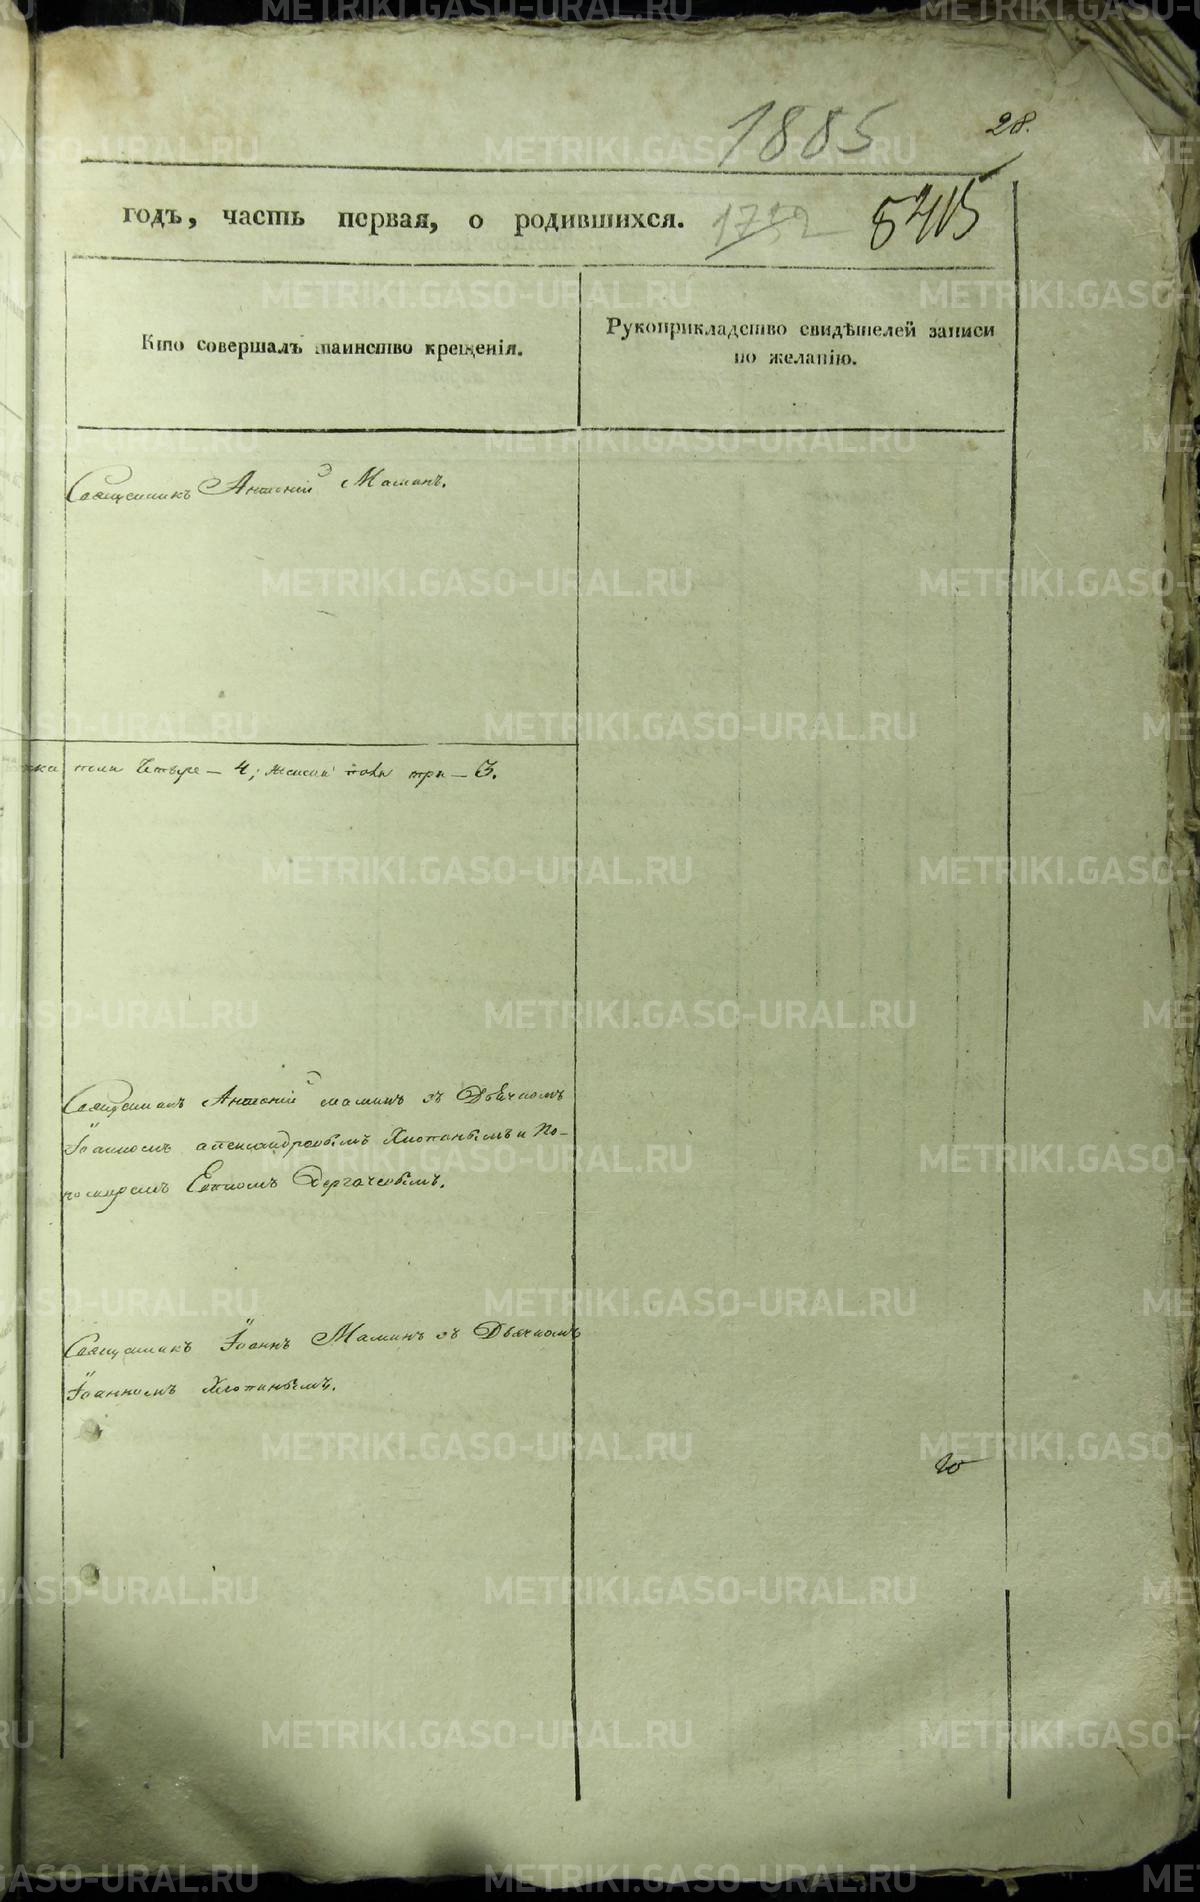 1885
28.
годъ, часть первая, о родившихся. 1752 5415
Кто совершалъ таинство крещенія.
Рукоприкладство свидѣтелей записи
по желанію.
Священникъ Антоній Маминъ.
пола четыре – 4; женска пола три – 3.
Священникъ Антоній Маминъ съ Дьячкомъ
Іоанномъ Александровымъ Хлопинымъ и По-
номаремъ Дергачевымъ.
Священникъ Іоаннъ Маминъ съ Дьячкомъ
Іоанномъ Хлопинымъ.
METRIKI.GASO-URAL.RU